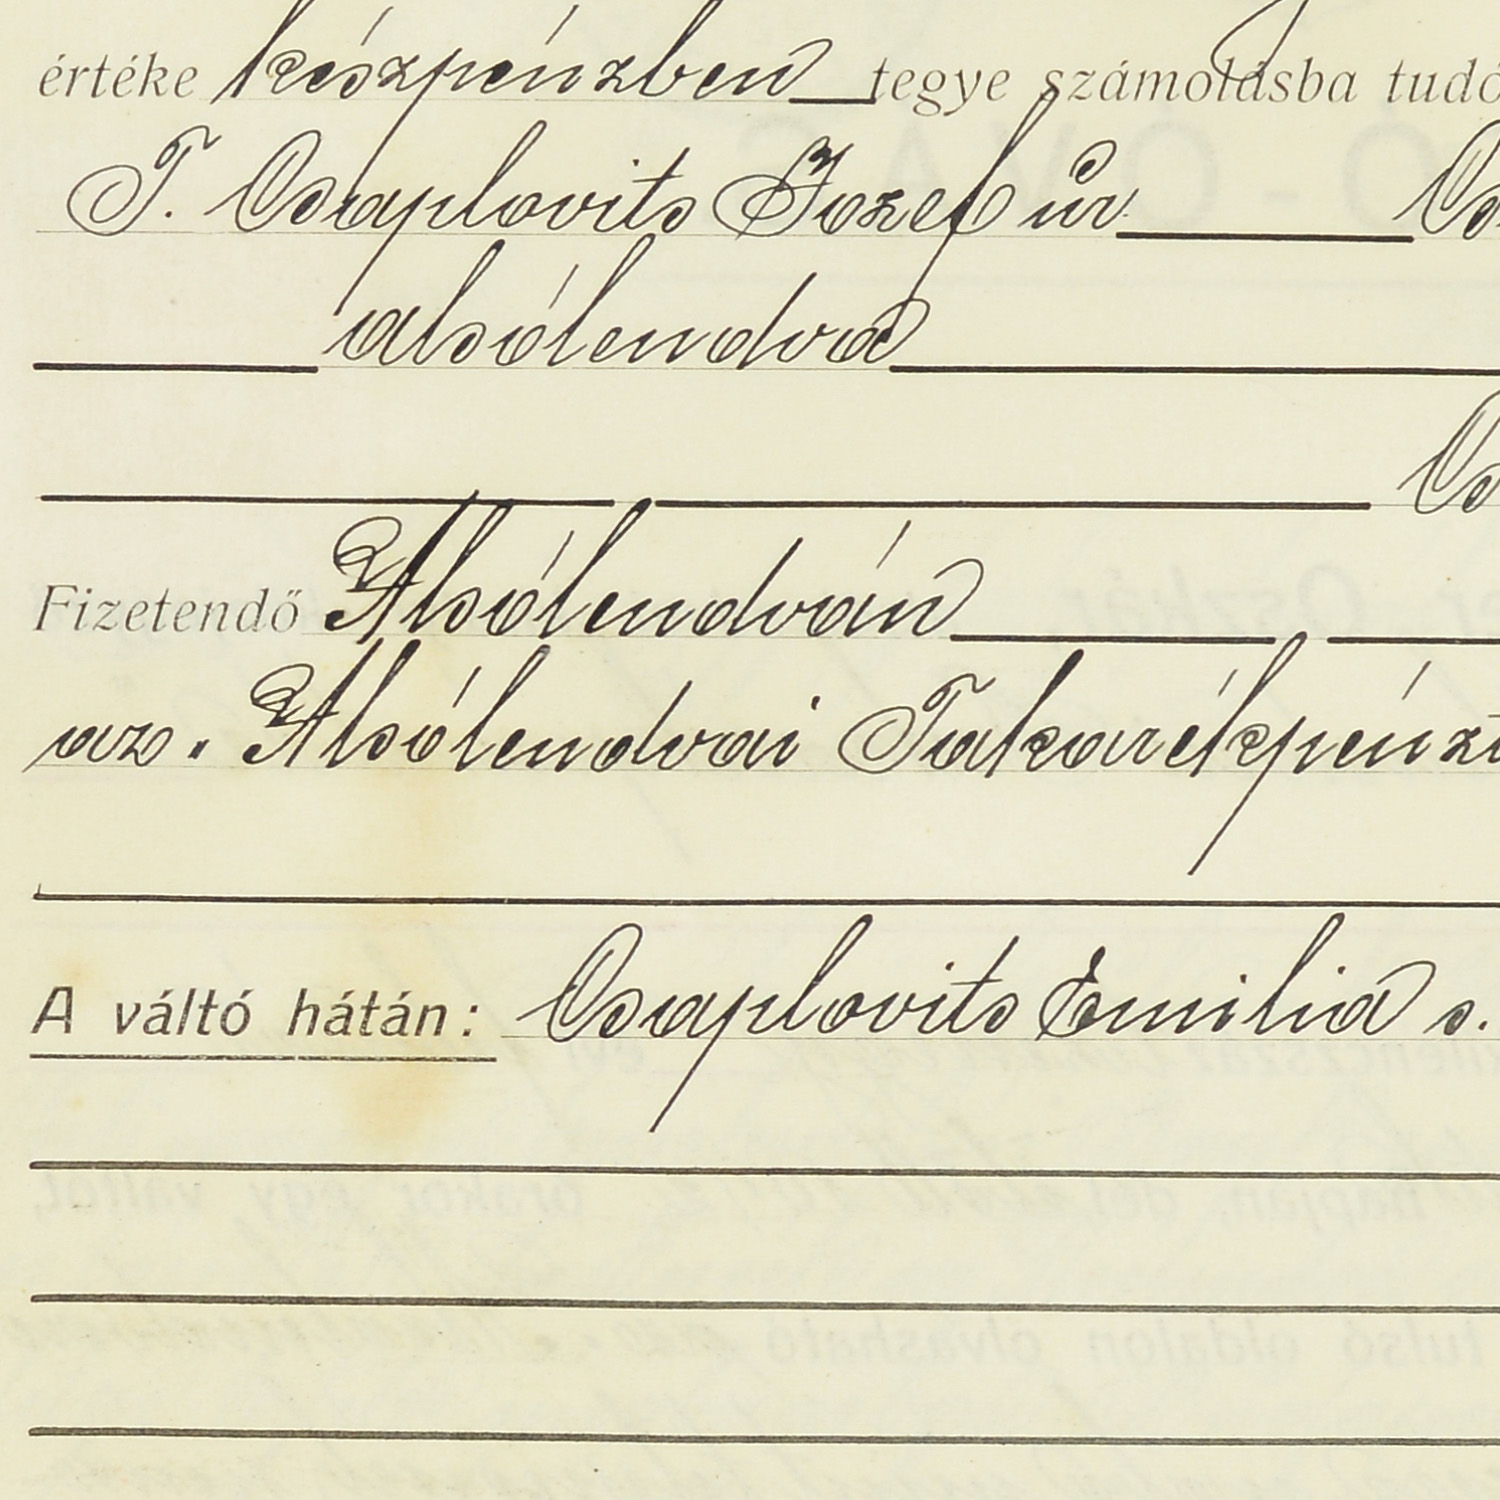 értéke készpénzben tegye számolásba tudó
T. Csaplovits Jozef úr Cs
alsólendva
Cs
Fizetendő Alsólendván
az. Alsólendvai Takarékpénzt
A váltó hátán: Csaplovits Emilia s.